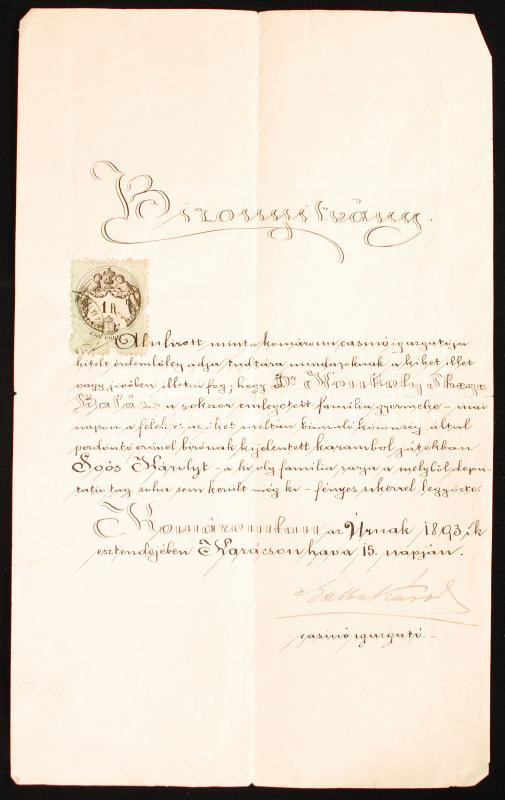 Bizonyitvány.
1 fl.
Alulirott mint a komáromi casinó igazgatója
hitelt érdemlőleg adja tudtára mindazoknak a kiket illet
vagy jövőben illetni fog; hogy Dr
a sokszor emlegetett familia gyermeke – mai
napon a felek és az őket méltán bámuló közönség által
perdöntő erővel birónak kijelentett karambol játékban
Soós Károlyt – a ki oly familia sarja a melyből depu-
tatio tag soha sem került még ki – fényes sikerrel legyőzte.
Komáromban az Úrnak 1893ik
esztendejében Karácson hava 15. napján.
casinó igazgató. –